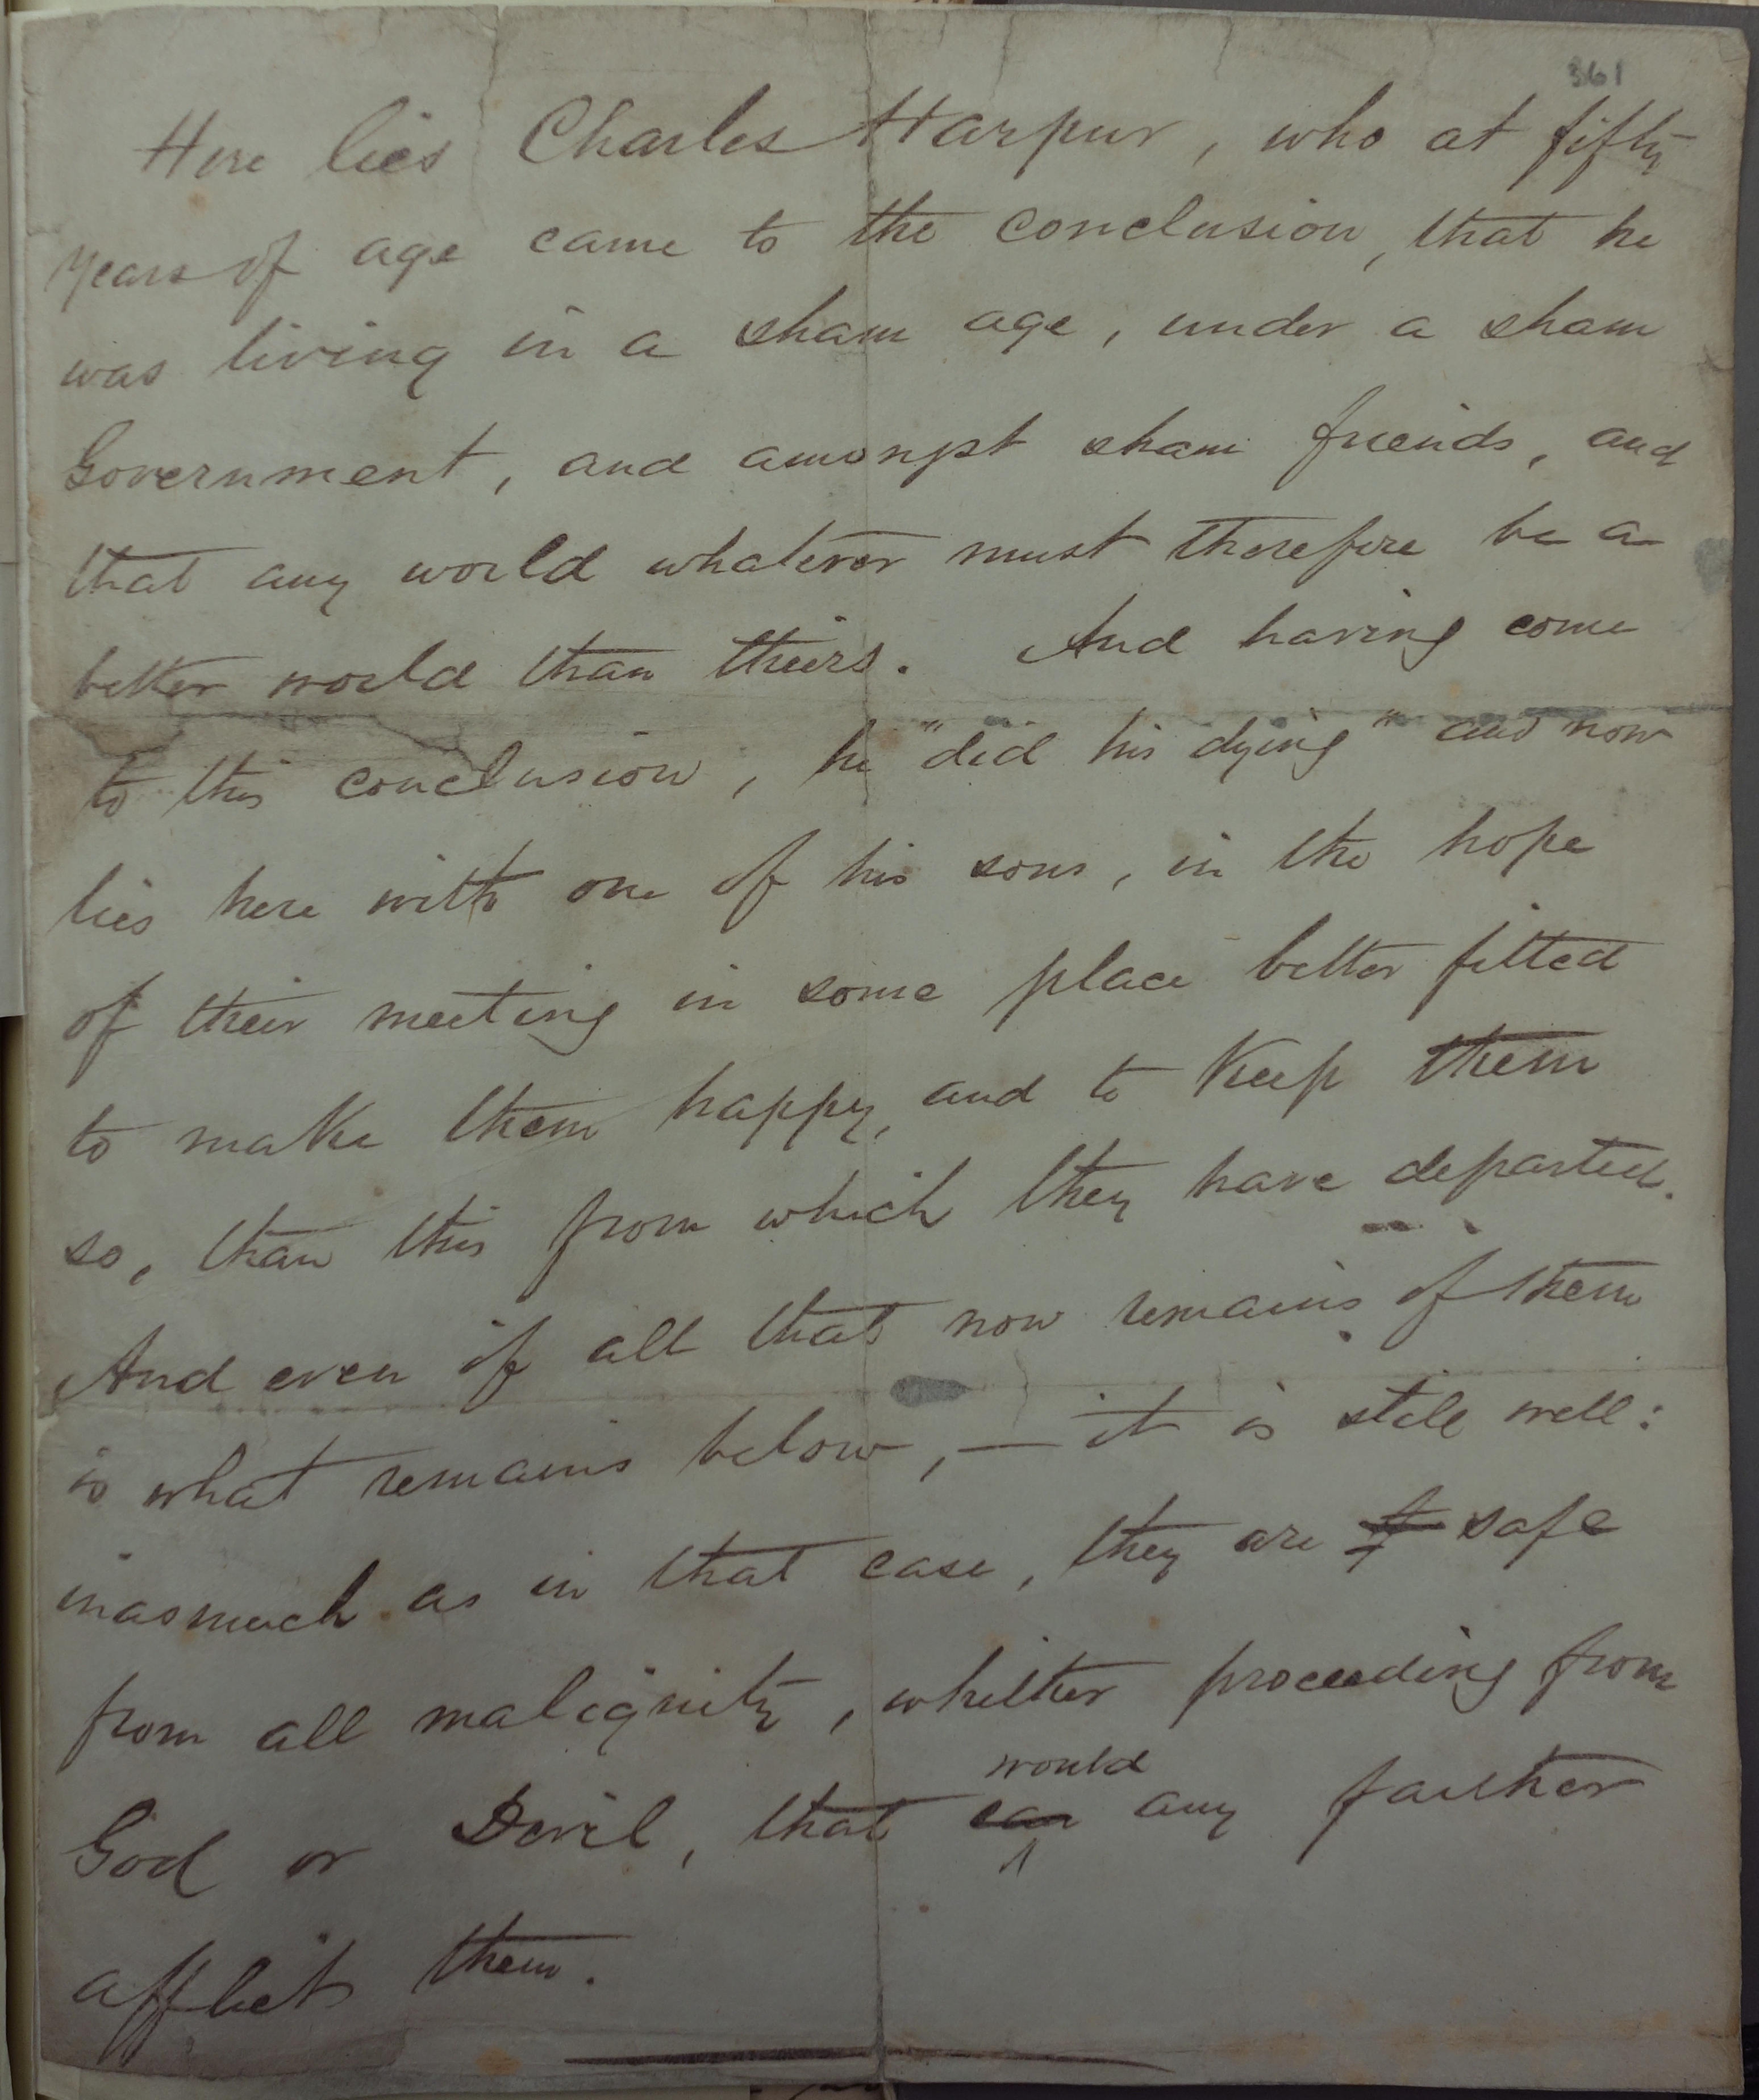 361
Here lies Charles Harpur, who at fifty
years of age came to the conclusion, that he
was living in a sham age, under a sham
Government, and amongst sham friends, and
that any world whatever must therefore be a
better world than theirs. And having come
to this conclusion, he "did his dying" and now
lies here with one of his sons, in the hope
of their meeting in some place better fitted
to make them happy, and to keep them
so, than this from which they have departed.
And even if all that now remains of them
is what remains below, — it is still well:
inasmuch as in that case, they are safe
from all malignity, whether proceeding from
would
God or Devil, that can any farther
afflict them.